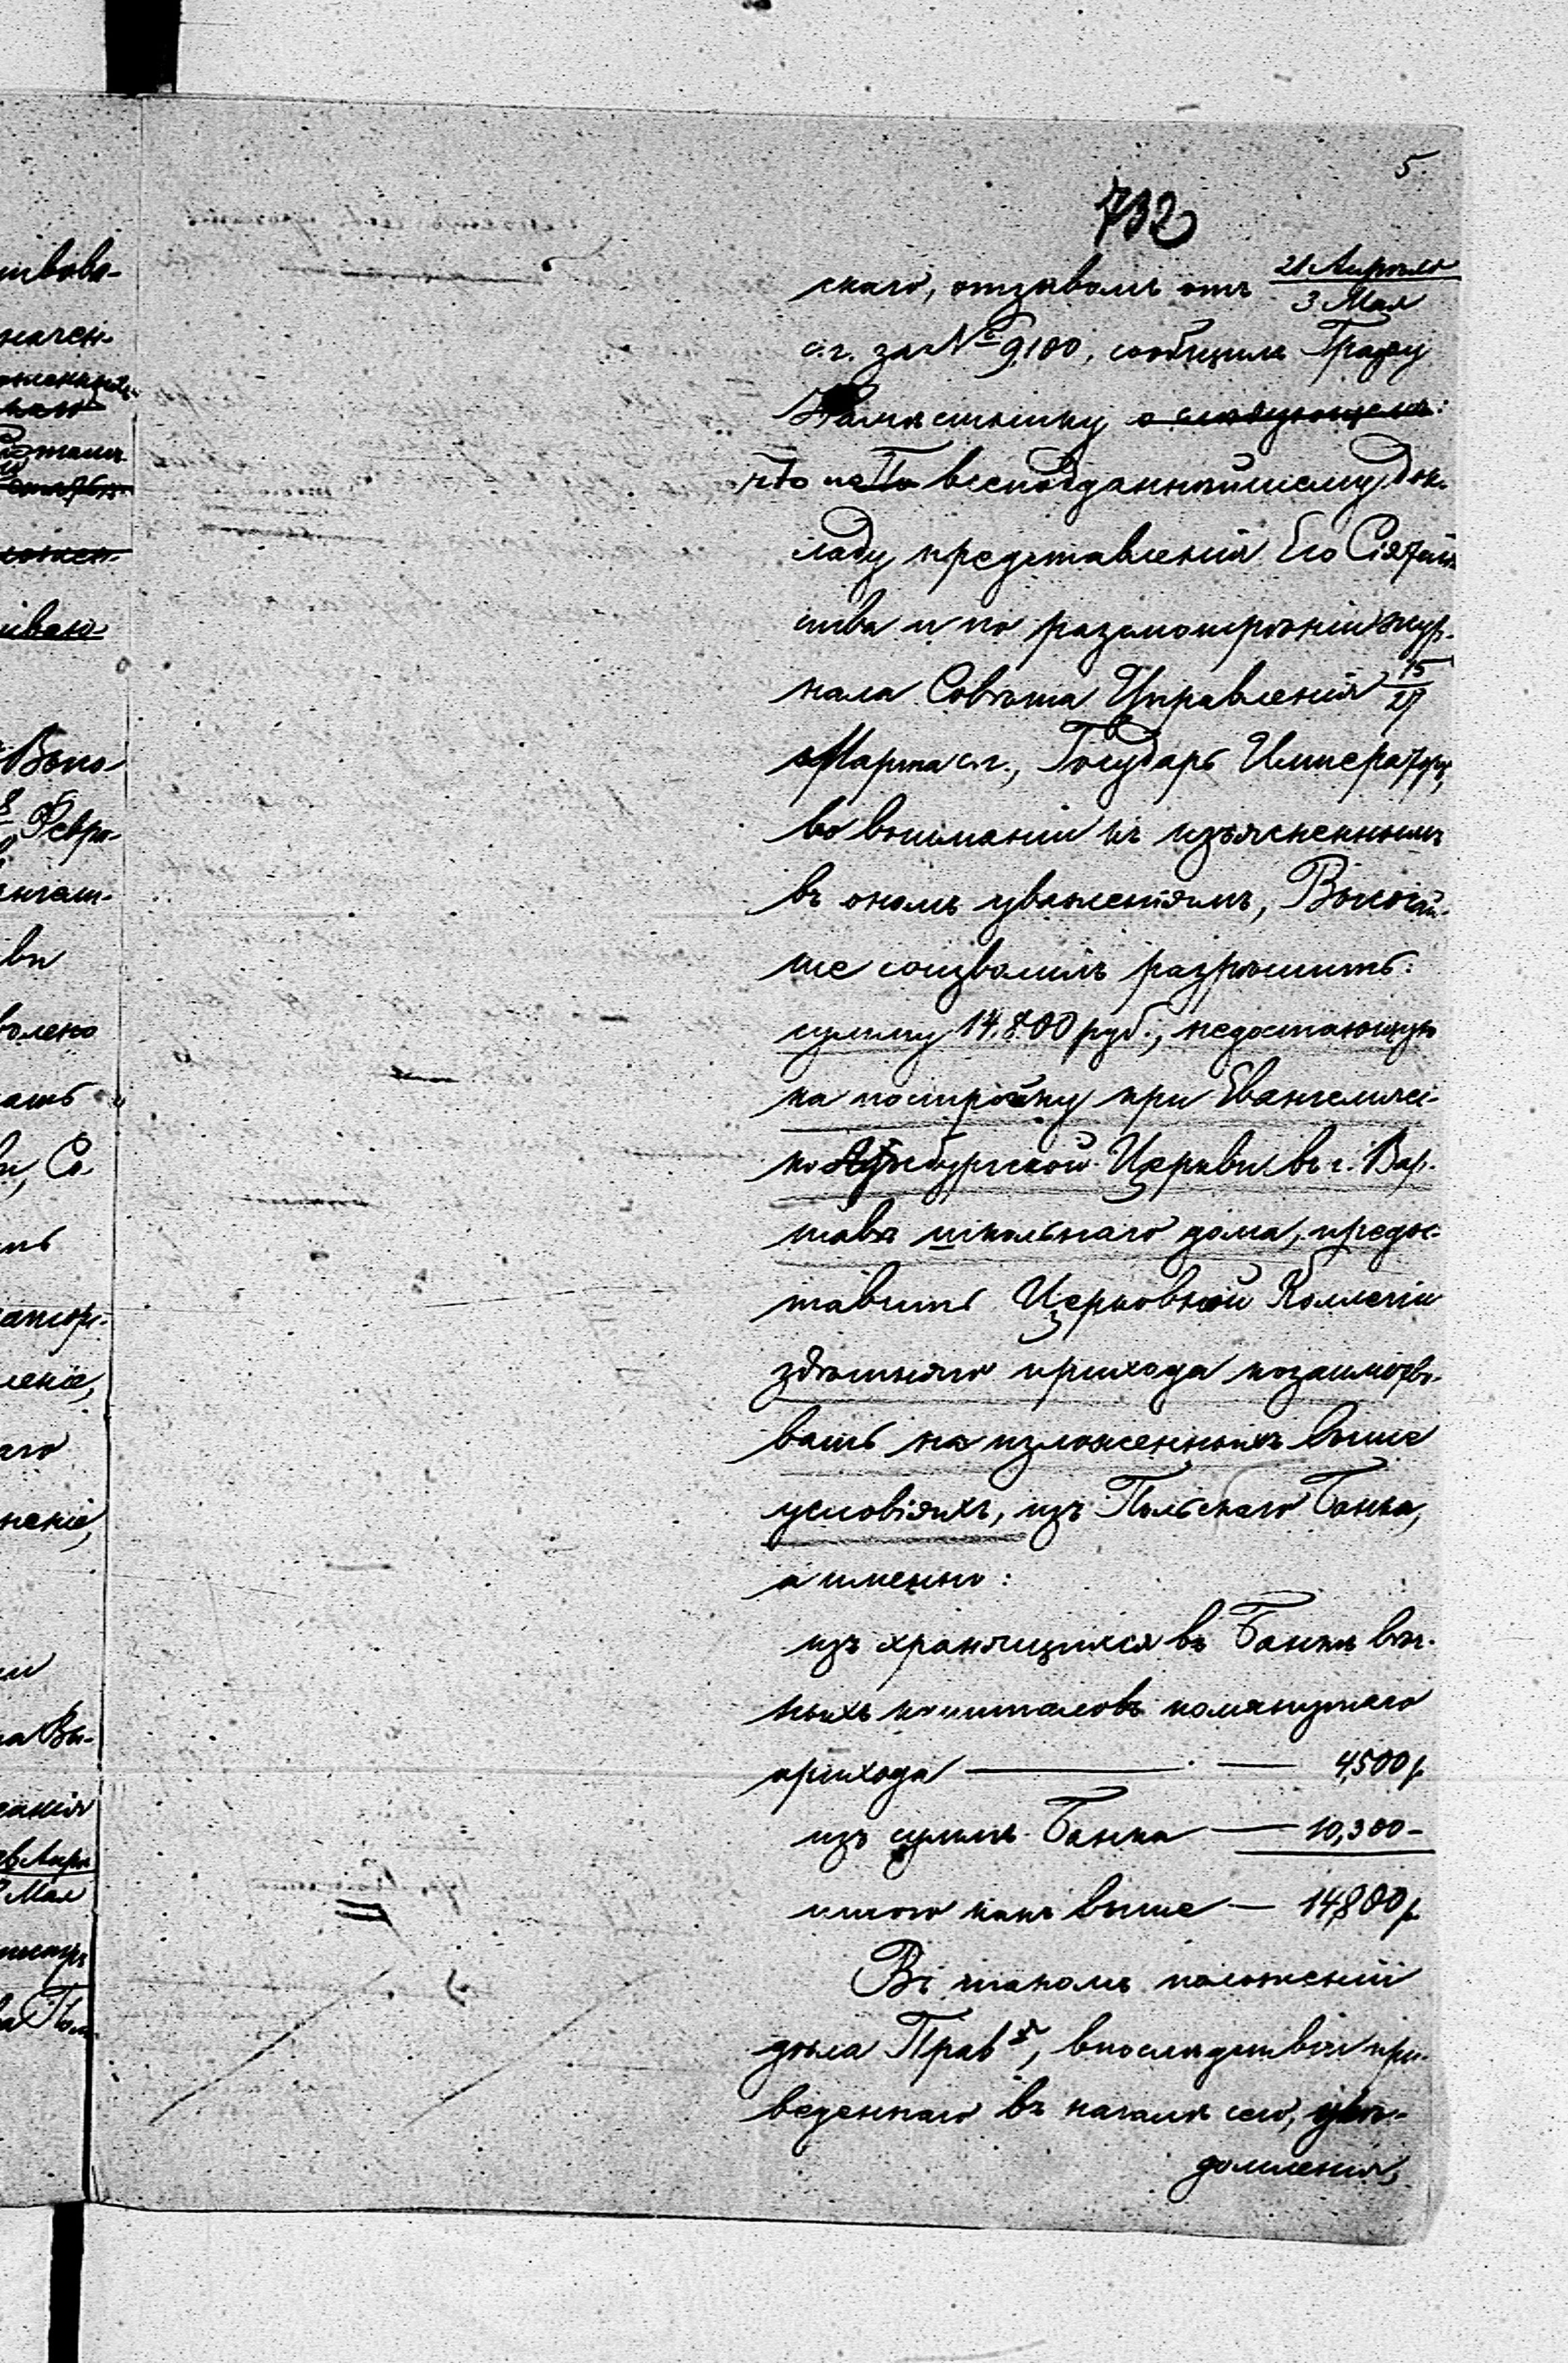 5.
732
скаго, отзывомъ отъ 21 Апрѣля / 3 Мая
с.г. за № 9,100, сообщилъ Графу
Намѣстнику о слѣдующемъ:
что по По всеподданнѣйшему док-
ладу представленія Его Сіятель-
ства и по разсмотрѣніи жур-
нала Совѣта Управленія 15/27
Марта с.г., Государь Императоръ,
во вниманіи къ изъясненнымъ
въ ономъ уваженіямъ, Высочай-
ше соизволилъ разрѣшить:
сумму 14,800 руб., недостающую
на постройку при Евангелическо-
Аугсбургской Церкви въ г. Вар-
шавѣ школьнаго дома, предос-
тавить Церковной Коллегіи
здѣшняго прихода позаимство-
вать на изложенныхъ выше
условіяхъ, изъ Польскаго Банка,
а именно:
изъ хранящихся въ Банкѣ вѣч-
ныхъ капиталовъ помянутаго
прихода — — 4,500 р.
изъ суммъ Банка — 10,300 -
итого какъ выше — 14,800 р.
Въ такомъ положеніи
дѣла Прав., впослѣдствіи при-
веденнаго въ началѣ сего, увѣ-
домленія,
ствова-
значен-
Высо
Февра-
волено
Со-
леніе,
аго
неніе,
Мая